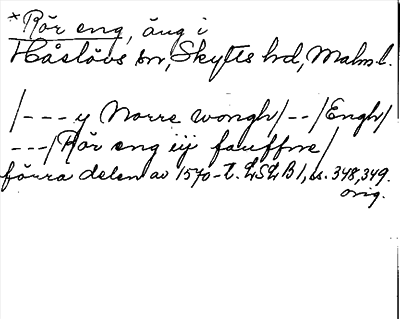 *Rör eng, äng i
Håslövs sn, Skytts hd, Malm.l.
/--- y Norre wongh/--/Engh/
---/Rör eng iij fauffne/
förra delen av 1570-t. LSLB 1, s. 348, 349.
orig.